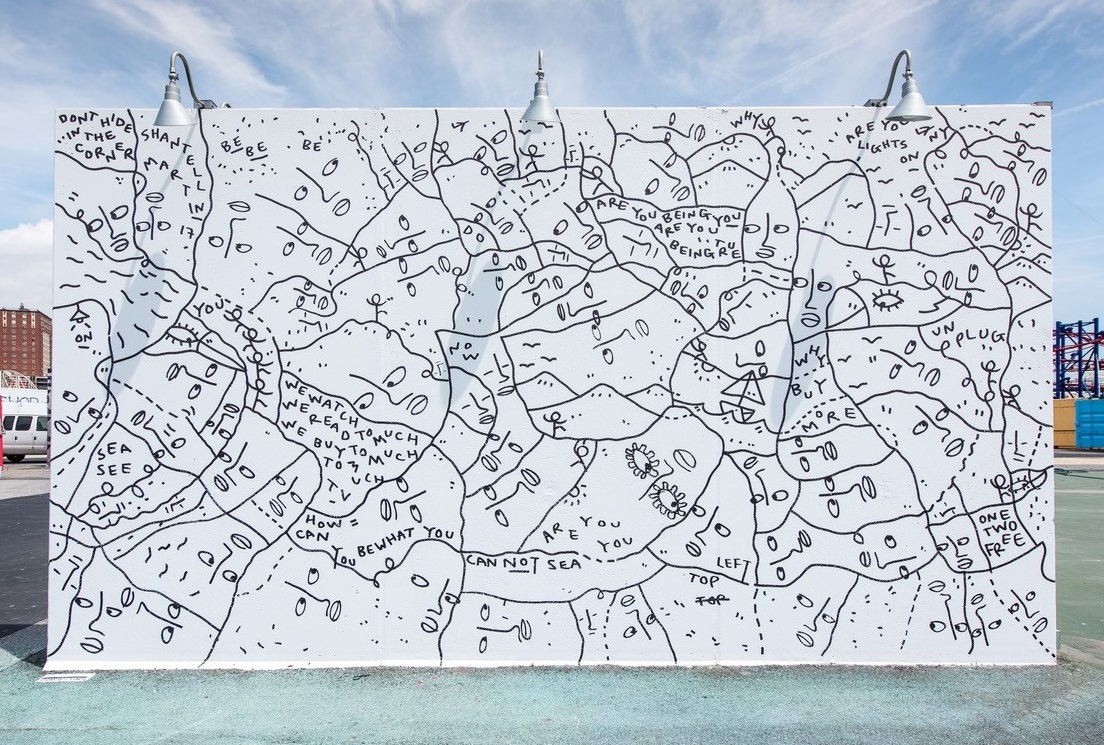 DONT HIDE
IN THE
CORNER
SHANTE
MARTELL
IN
17
BE
BE
BE
WHY
ARE YOU ANY
LIGHTS
ON
ARE YOU BEING YOU
ARE YOU
BEING
ON
NOW
UNPLUG
WHY
BUY
MORE
WE WATCH
WE READ TO MUCH
WE BUY TO MUCH
TO MUCH
TV
SEA
SEE
HOW =
CAN
YOU BE WHAT YOU
ARE YOU
YOU
CAN NOT SEA
LEFT
TOP
TOP
ONE
TWO
FREE